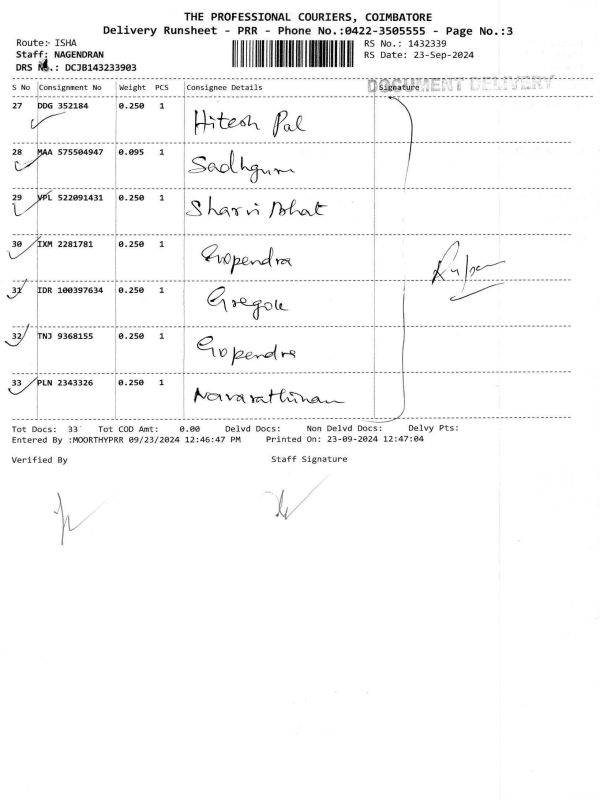 THE PROFESSIONAL COURIERS, COIMBATORE
Delivery Runsheet - PRR - Phone No.:0422-3505555 - Page No.:3
Route:- ISHA RS No.: 1432339
Staff: NAGENDRAN RS Date: 23-Sep-2024
DRS No.: DCJB143233903
DOCUMENT DELIVERY
S No Consignment No Weight PCS Consignee Details Signature
27 DDG 352184 0.250 1 Hitesh Pal
28 MAA 575504947 0.095 1 Sadhguru
29 VPL 522091431 0.250 1 Sharvi Bhat
30 IXM 2281781 0.250 1 Gopendra
31 IDR 100397634 0.250 1 Gregole
32 TNJ 9368155 0.250 1 Gopendra
33 PLN 2343326 0.250 1 Navarathinam
Tot Docs: 33 Tot COD Amt: 0.00 Delvd Docs: Non Delvd Docs: Delvy Pts:
Entered By :MOORTHYPRR 09/23/2024 12:46:47 PM Printed On: 23-09-2024 12:47:04
Verified By Staff Signature